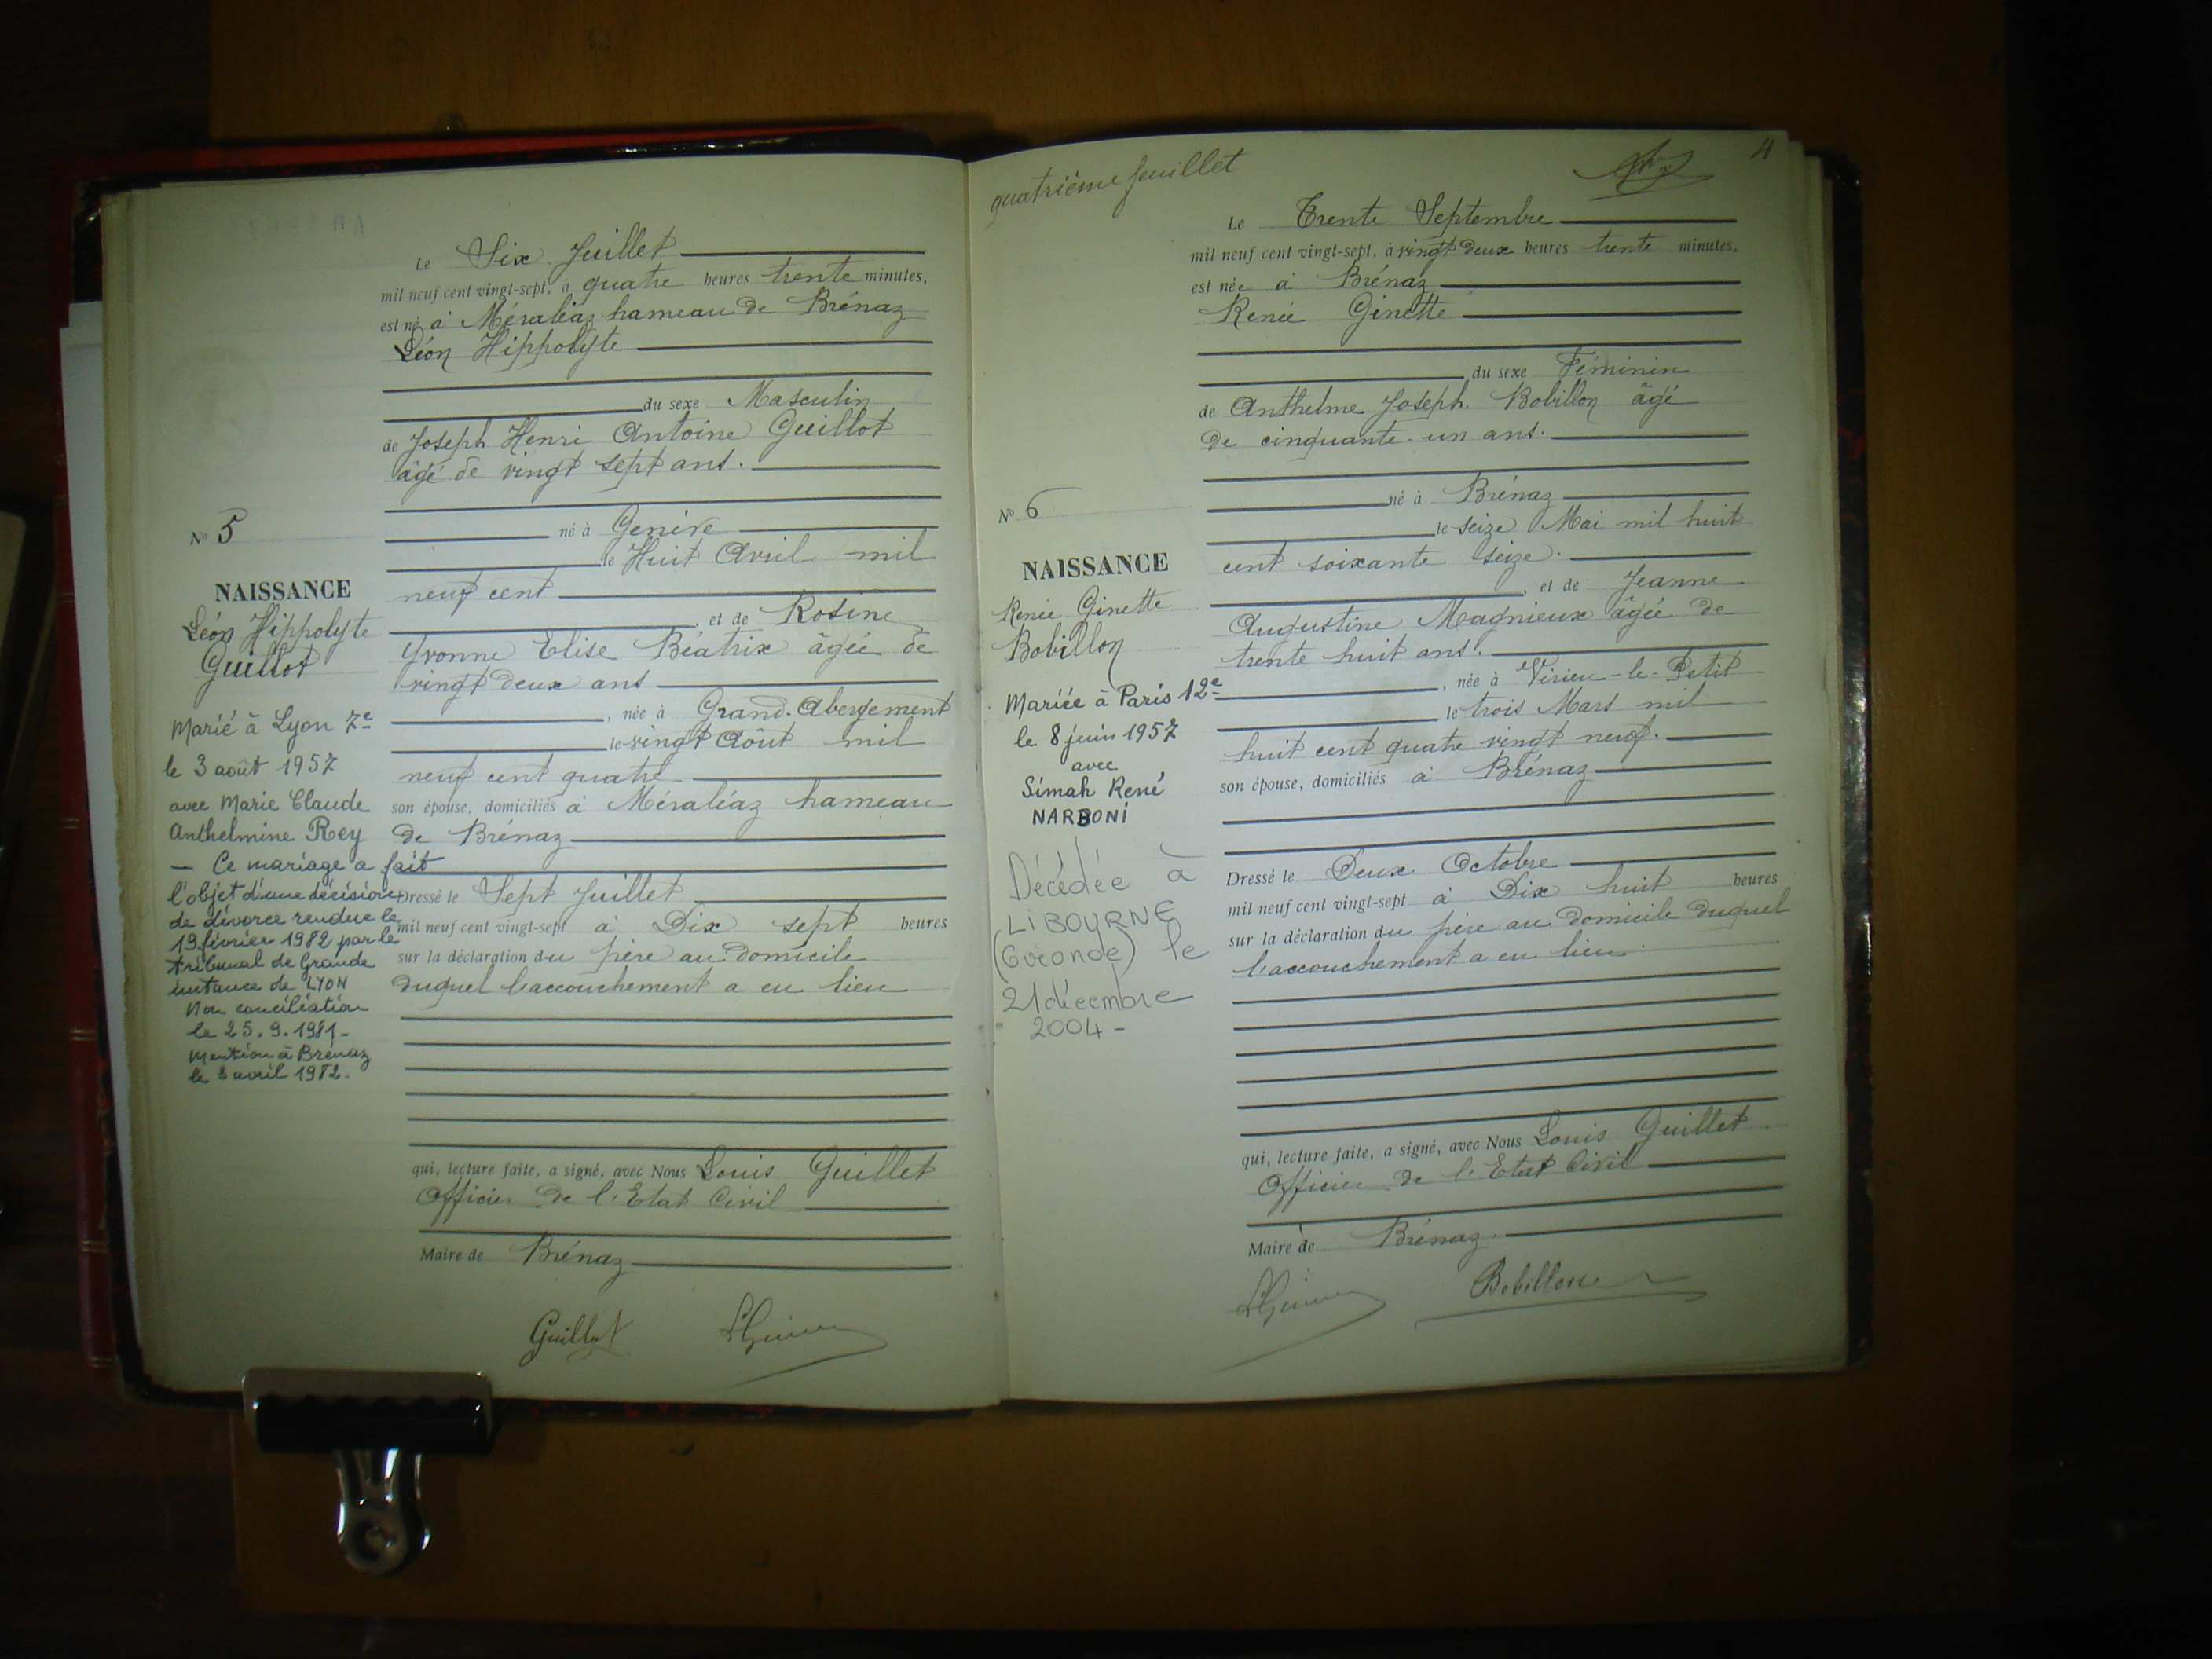 Le Six Juillet
mil neuf cent vingt-sept, à quatre heures trente minutes,
est né à Méraléaz hameau de Brénaz
Léon Hippolyte
du sexe Masculin
de Joseph Henri Antoine Guillot
âgé de vingt sept ans.
né à Genève
le Huit Avril mil
neuf cent
, et de Rosine
Yvonne Elise Béatrix âgée de
vingt deux ans
, née à Grand-Abergement
le vingt Août mil
neuf cent quatre
son épouse, domiciliés à Méraléaz hameau
de Brénaz
Dressé le Sept Juillet
mil neuf cent vingt-sept à Dix sept heures
sur la déclaration du père au domicile
duquel l'accouchement a eu lieu
qui, lecture faite, a signé, avec Nous Louis Guillet
Officier de l'Etat Civil
Maire de Brénaz
Guillot
N° 5
NAISSANCE
Léon Hippolyte
Guillot
Marié à Lyon 7e
le 3 août 1957
avec Marie Claude
Anthelmine Rey
— Ce mariage a fait
l'objet d'une décision
de divorce rendue le
19 février 1982 par le
tribunal de Grande
instance de LYON
Non conciliation
le 25.9.1981-
Mention à Brénaz
le 3 avril 1982.
quatrième feuillet
4
Le Trente Septembre
mil neuf cent vingt-sept, à vingt deux heures trente minutes,
est née à Brénaz
Renée Ginette
du sexe Féminin
de Anthelme Joseph Bobillon âgé
de cinquante-un ans.
né à Brénaz
le seize Mai mil huit
cent soixante seize.
, et de Jeanne
Augustine Magnieux âgée de
trente huit ans.
, née à Virieu-le-Petit
le trois Mars mil
huit cent quatre vingt neuf.
son épouse, domiciliés à Brénaz
Dressé le Deux Octobre
mil neuf cent vingt-sept à Dix huit heures
sur la déclaration du père au domicile duquel
l'accouchement a eu lieu
qui, lecture faite, a signé, avec Nous Louis Guillet
Officier de l'Etat Civil
Maire de Brénaz
Bobillon
N° 6
NAISSANCE
Renée Ginette
Bobillon
Mariée à Paris 12e
le 8 juin 1957
avec
Simah René
NARBONI
Décédée à
LIBOURNE
(Gironde) le
21 décembre
2004-